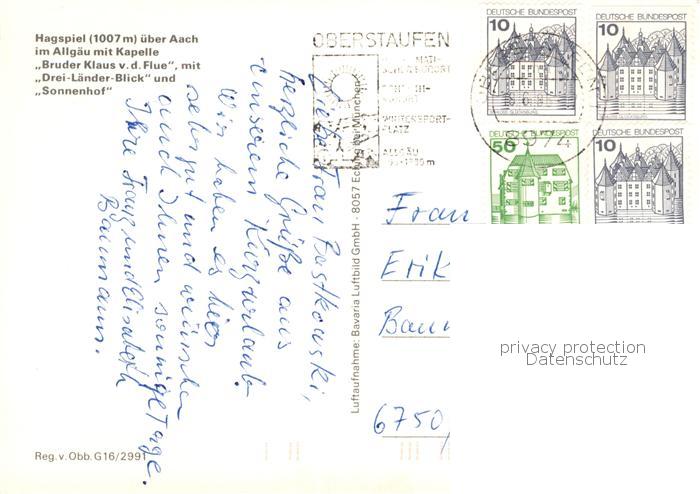 Hagspiel (1007 m) über Aach
im Allgäu mit Kapelle
„Bruder Klaus v. d. Flue", mit
„Drei-Länder-Blick" und
„Sonnenhof"
Liebe Frau Rostkowski,
herzliche Grüße aus
unserem Kurzurlaub.
Wir haben es hier
sehr gut und wünschen
auch Ihnen sonnige Tage.
Ihre Franz und Elisabeth
Baumann.
Reg. v. Obb. G16/2991
Luftaufnahme: Bavaria Luftbild GmbH · 8057 Eching bei München
OBERSTAUFEN
WINTERSPORT-
PLATZ
ALLGÄU
DEUTSCHE BUNDESPOST
10
DEUTSCHE BUNDESPOST
10
DEUTSCHE BUNDESPOST
50
DEUTSCHE BUNDESPOST
10
8974
Frau
Erik
Baum
6750
privacy protection
Datenschutz